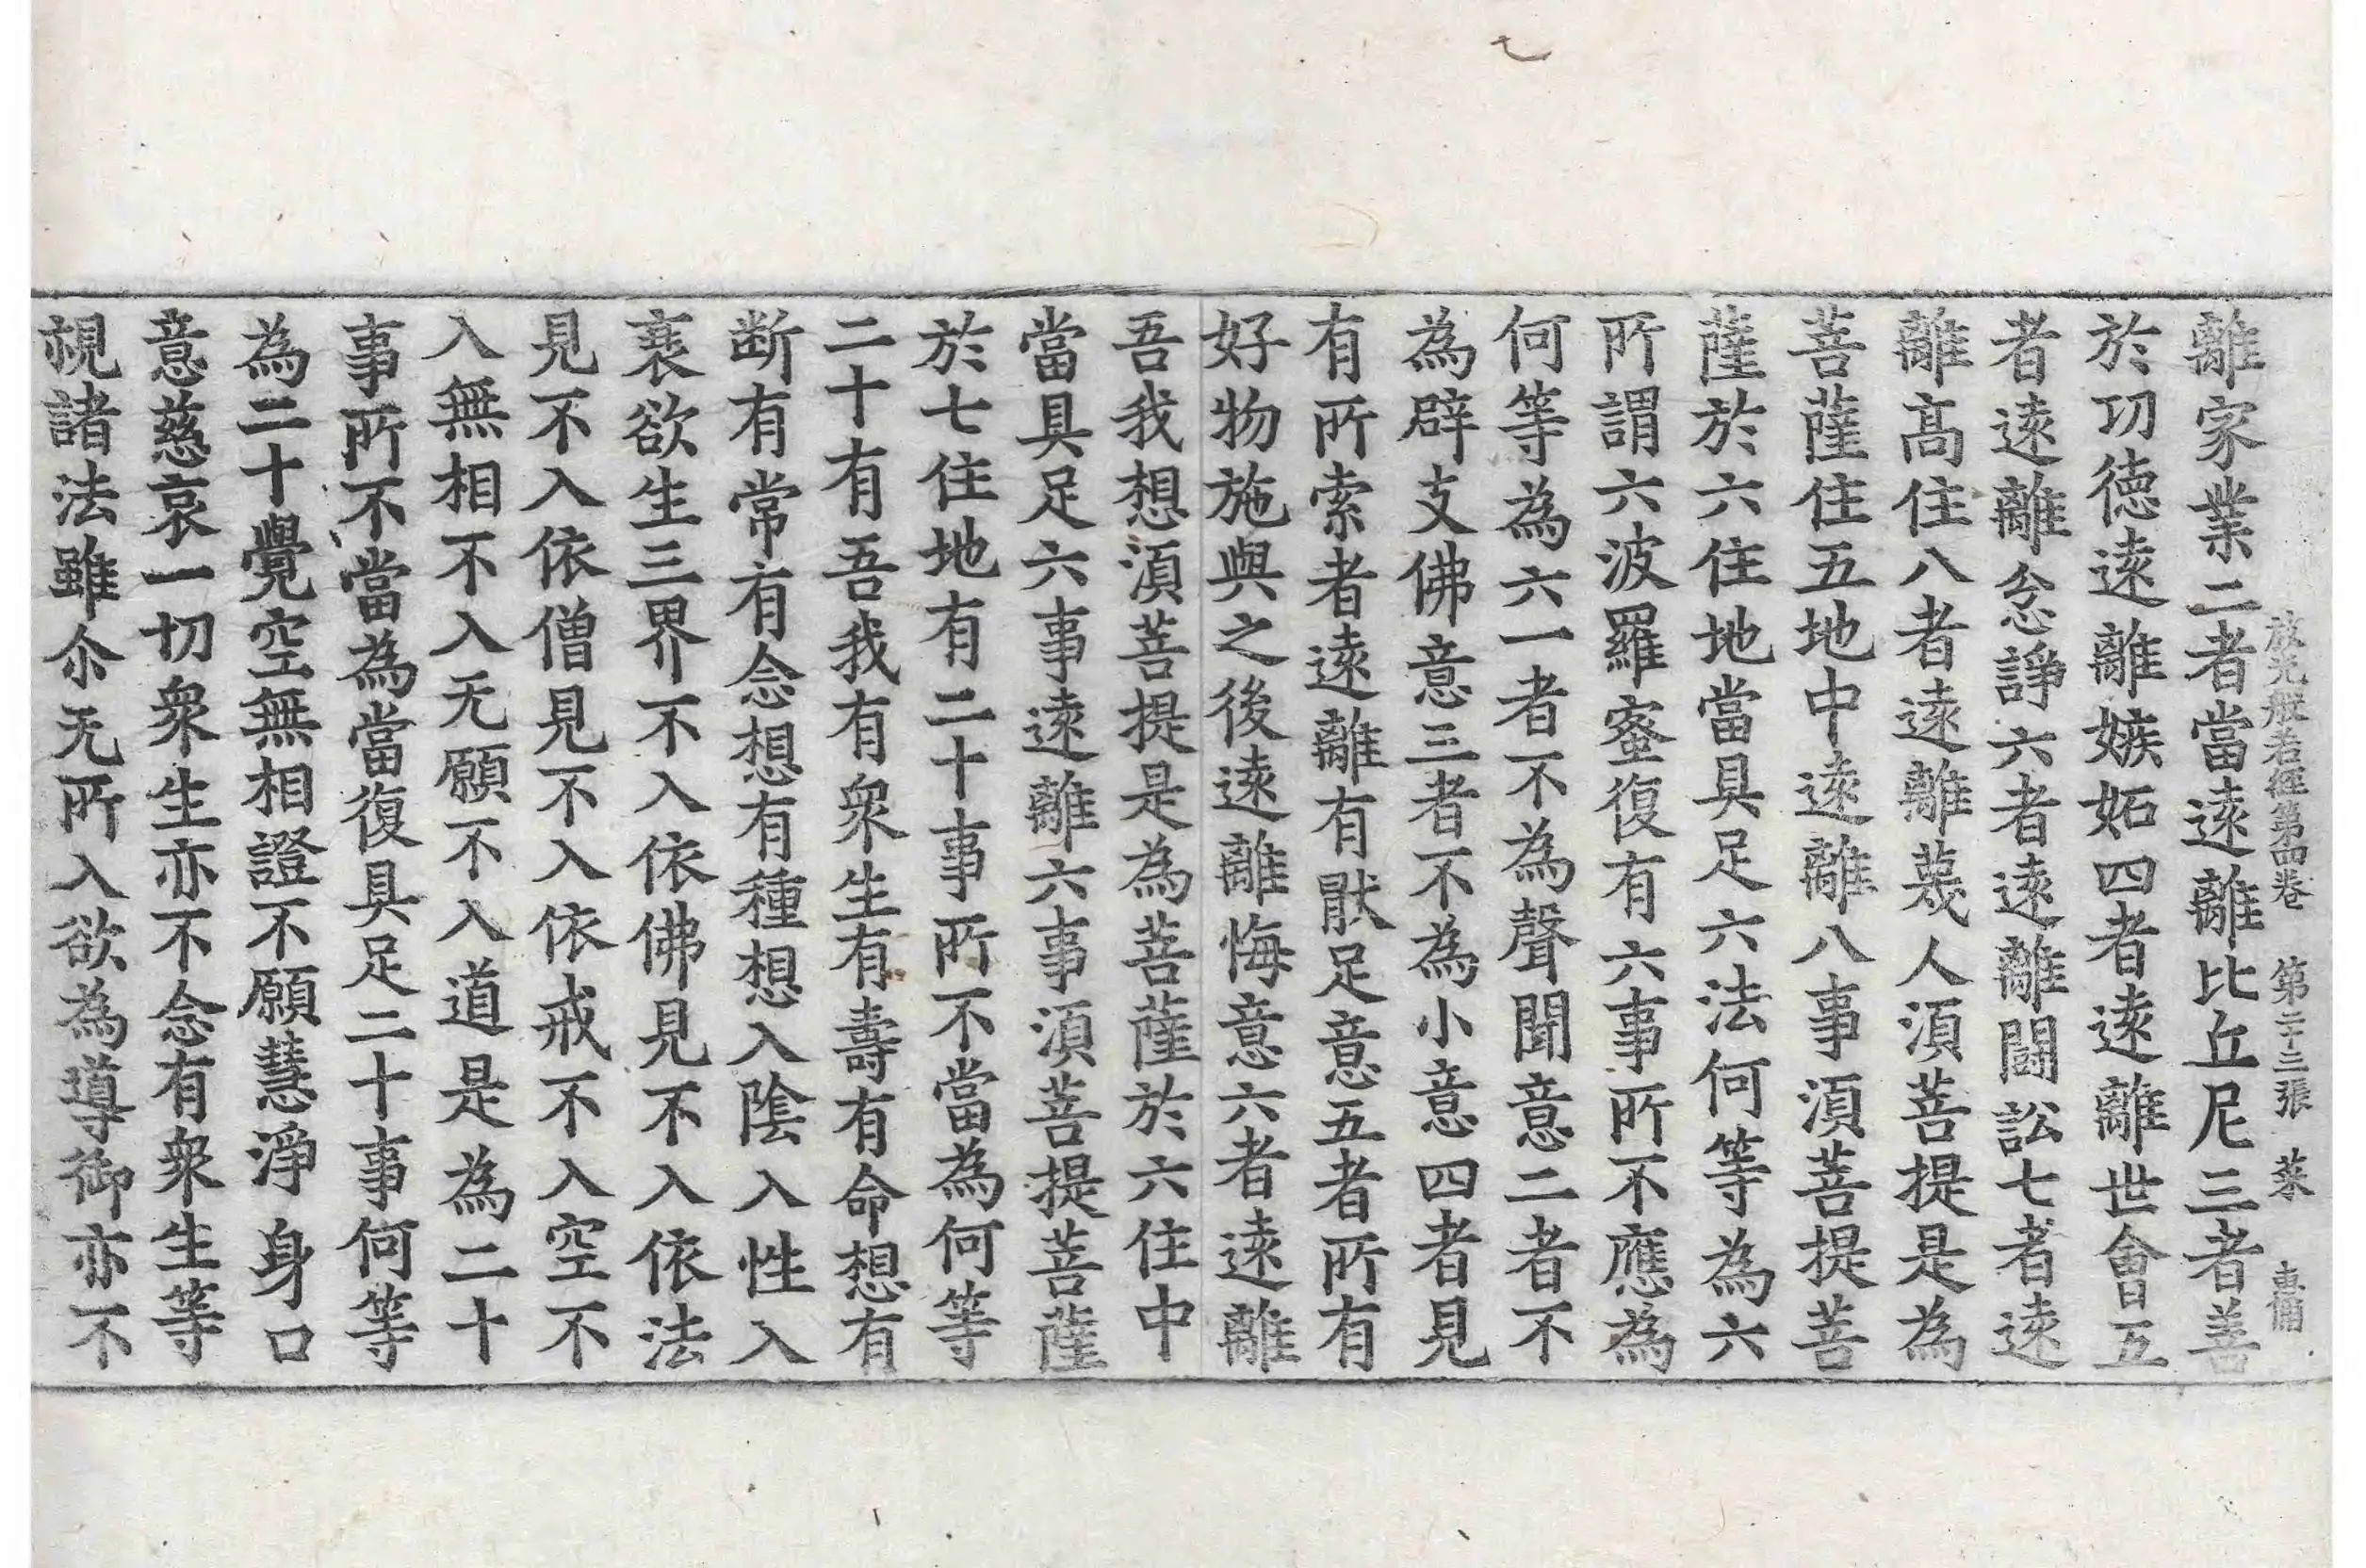 放光般若經第四卷 第二十三張 菜
離家業二者當遠離比丘尼三者善
於功德遠離嫉妬四者遠離世會五
者遠離忿諍六者遠離鬪訟七者遠
離髙住八者遠離蔑人湏菩提是為
菩薩住五地中遠離八事湏菩提菩
薩於六住地當具足六法何等為六
所謂六波羅蜜復有六事所不應為
何等為六一者不為聲聞意二者不
為辟支佛意三者不為小意四者見
有所索者遠離有猒足意五者所有
好物施與之後遠離悔意六者遠離
吾我想湏菩提是為菩薩於六住中
當具足六事遠離六事湏菩提菩薩
於七住地有二十事所不當為何等
二十有吾我有衆生有壽有命想有
断有常有念想有種想入陰入性入
衰欲生三界不入依佛見不入依法
見不入依僧見不入依戒不入空不
入無相不入无願不入道是為二十
事所不當為當復具足二十事何等
為二十覺空無相證不願慧淨身口
意慈哀一切衆生亦不念有衆生等
視諸法雖尒无所入欲為導御亦不